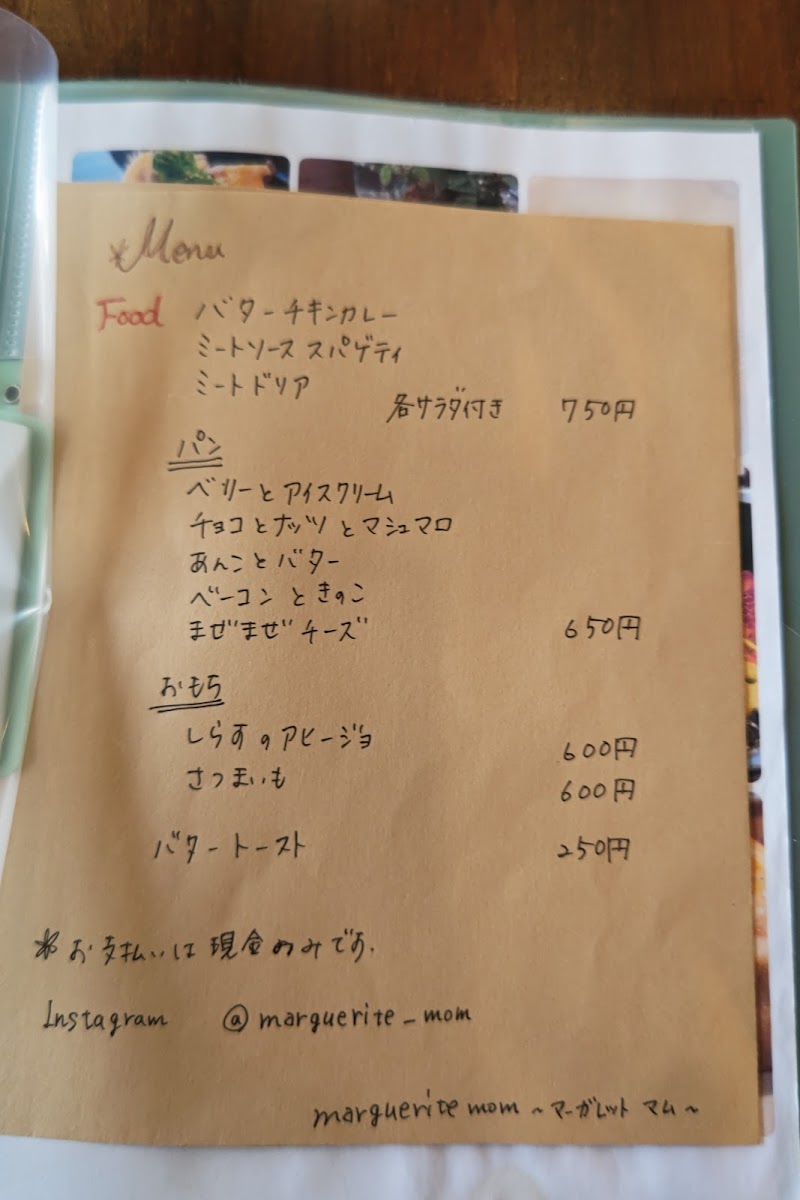 *Menu
Food バターチキンカレー
ミートソース スパゲティ
ミートドリア
各サラダ付き 750円
パン
ベリーとアイスクリーム
チョコとナッツとマシュマロ
あんことバター
ベーコンときのこ
まぜまぜチーズ 650円
おもち
しらすのアヒージョ 600円
さつまいも 600円
バタートースト 250円
*お支払いは現金のみです.
Instagram @marguerite_mom
marguerite mom ~マーガレット マム~